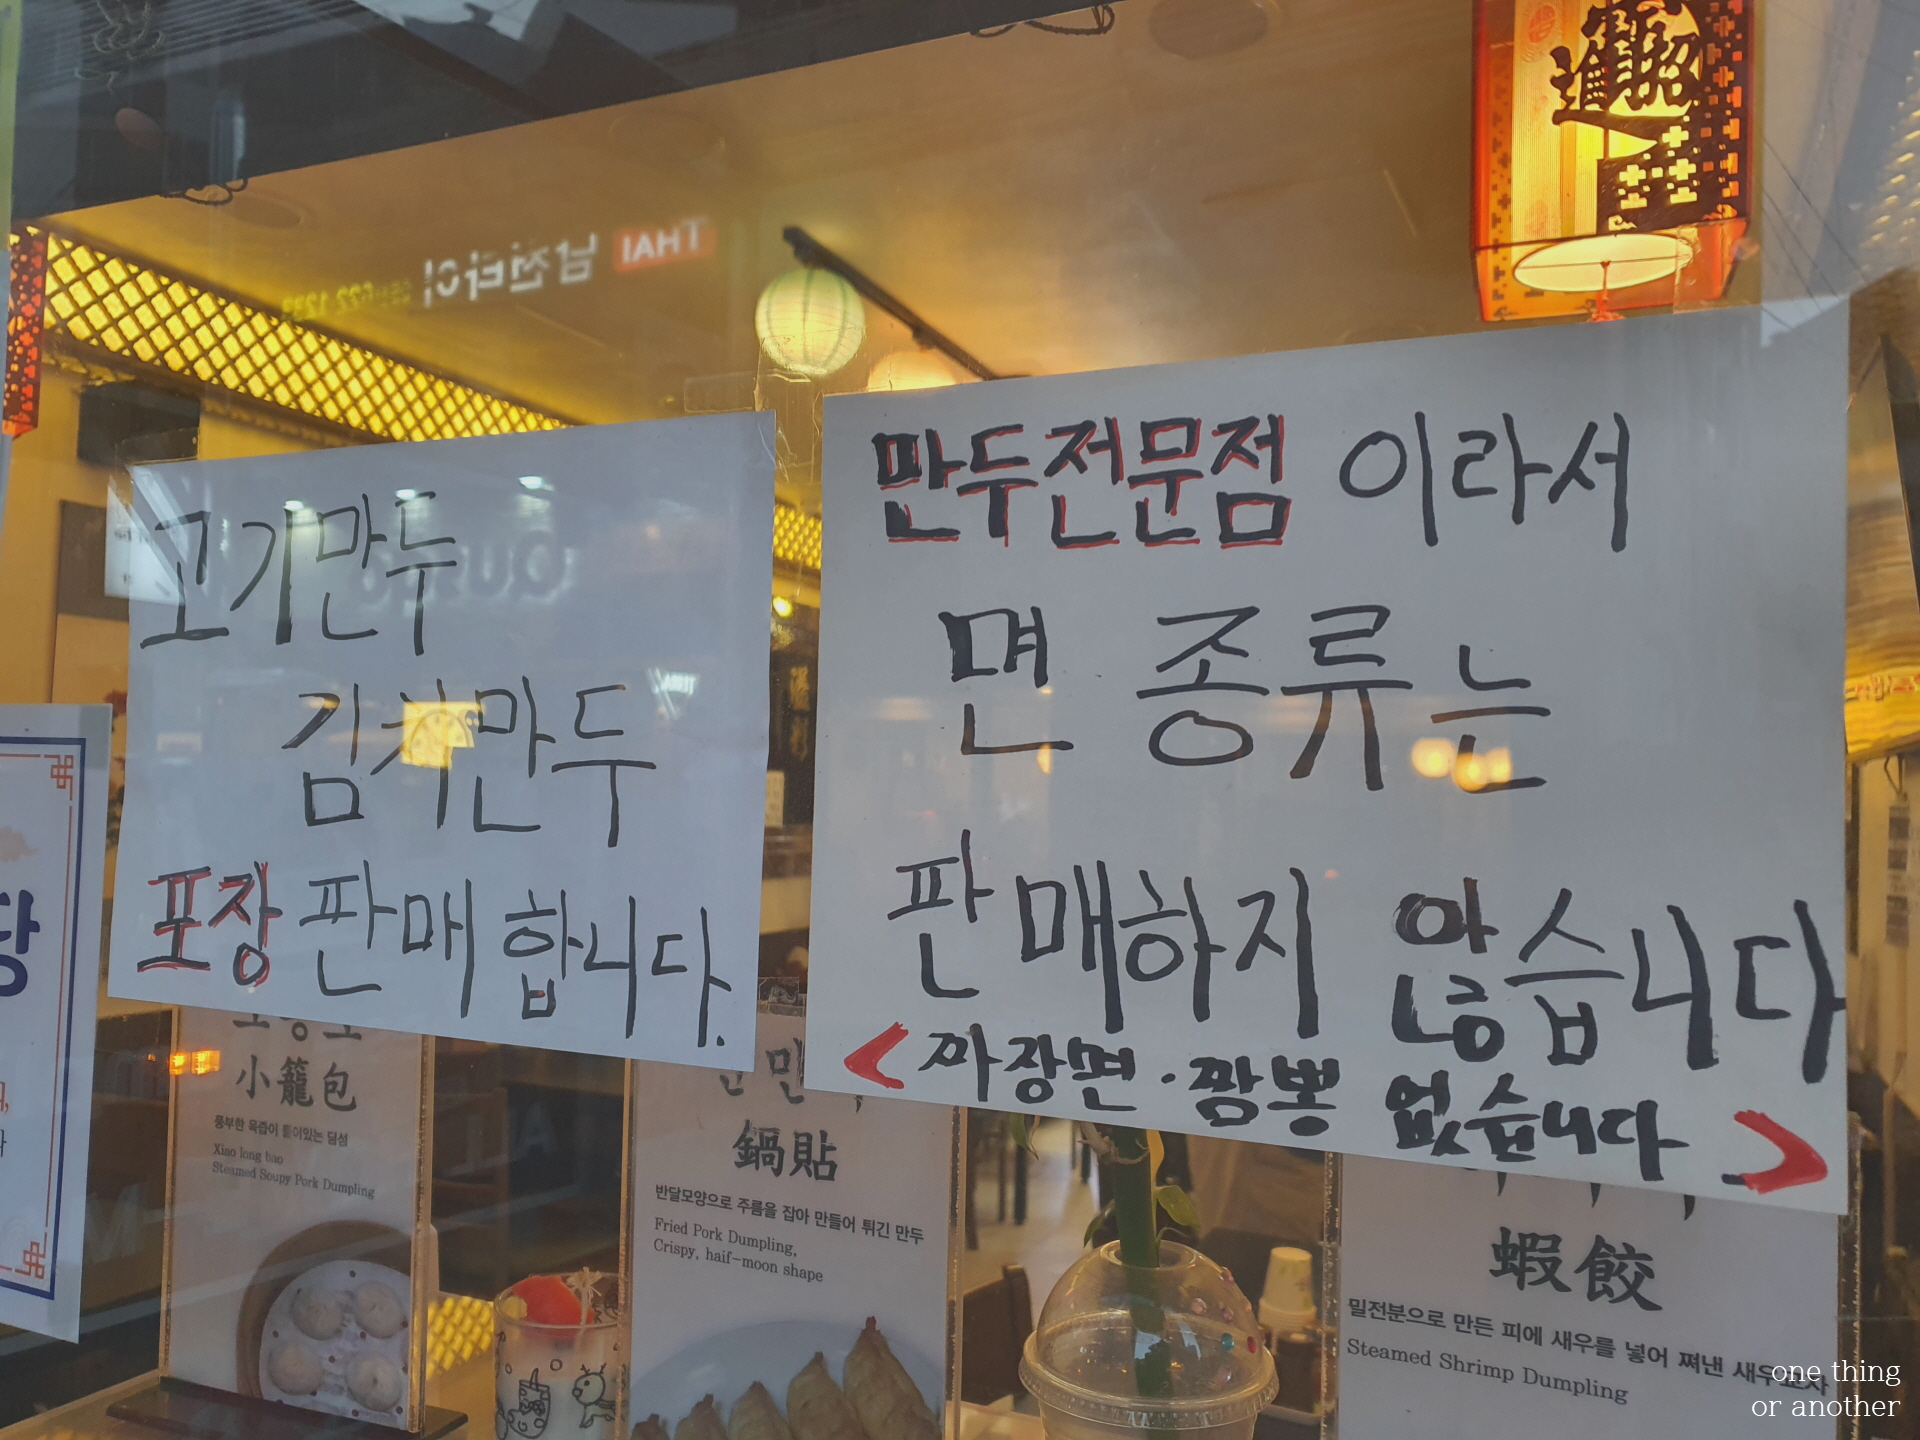 進
THAI 남천타이
고기만두
김치만두
포장 판매 합니다.
만두전문점 이라서
면 종류는
판매하지 않습니다
< 짜장면 · 짬뽕 없습니다 >
小籠包
풍부한 육즙이 들어있는 딤섬
Xiao long bao
Steamed Soupy Pork Dumpling
鍋貼
반달모양으로 주름을 잡아 만들어 튀긴 만두
Fried Pork Dumpling,
Crispy, haif-moon shape
蝦餃
밀전분으로 만든 피에 새우를 넣어 쪄낸 새우교자
Steamed Shrimp Dumpling
one thing
or another